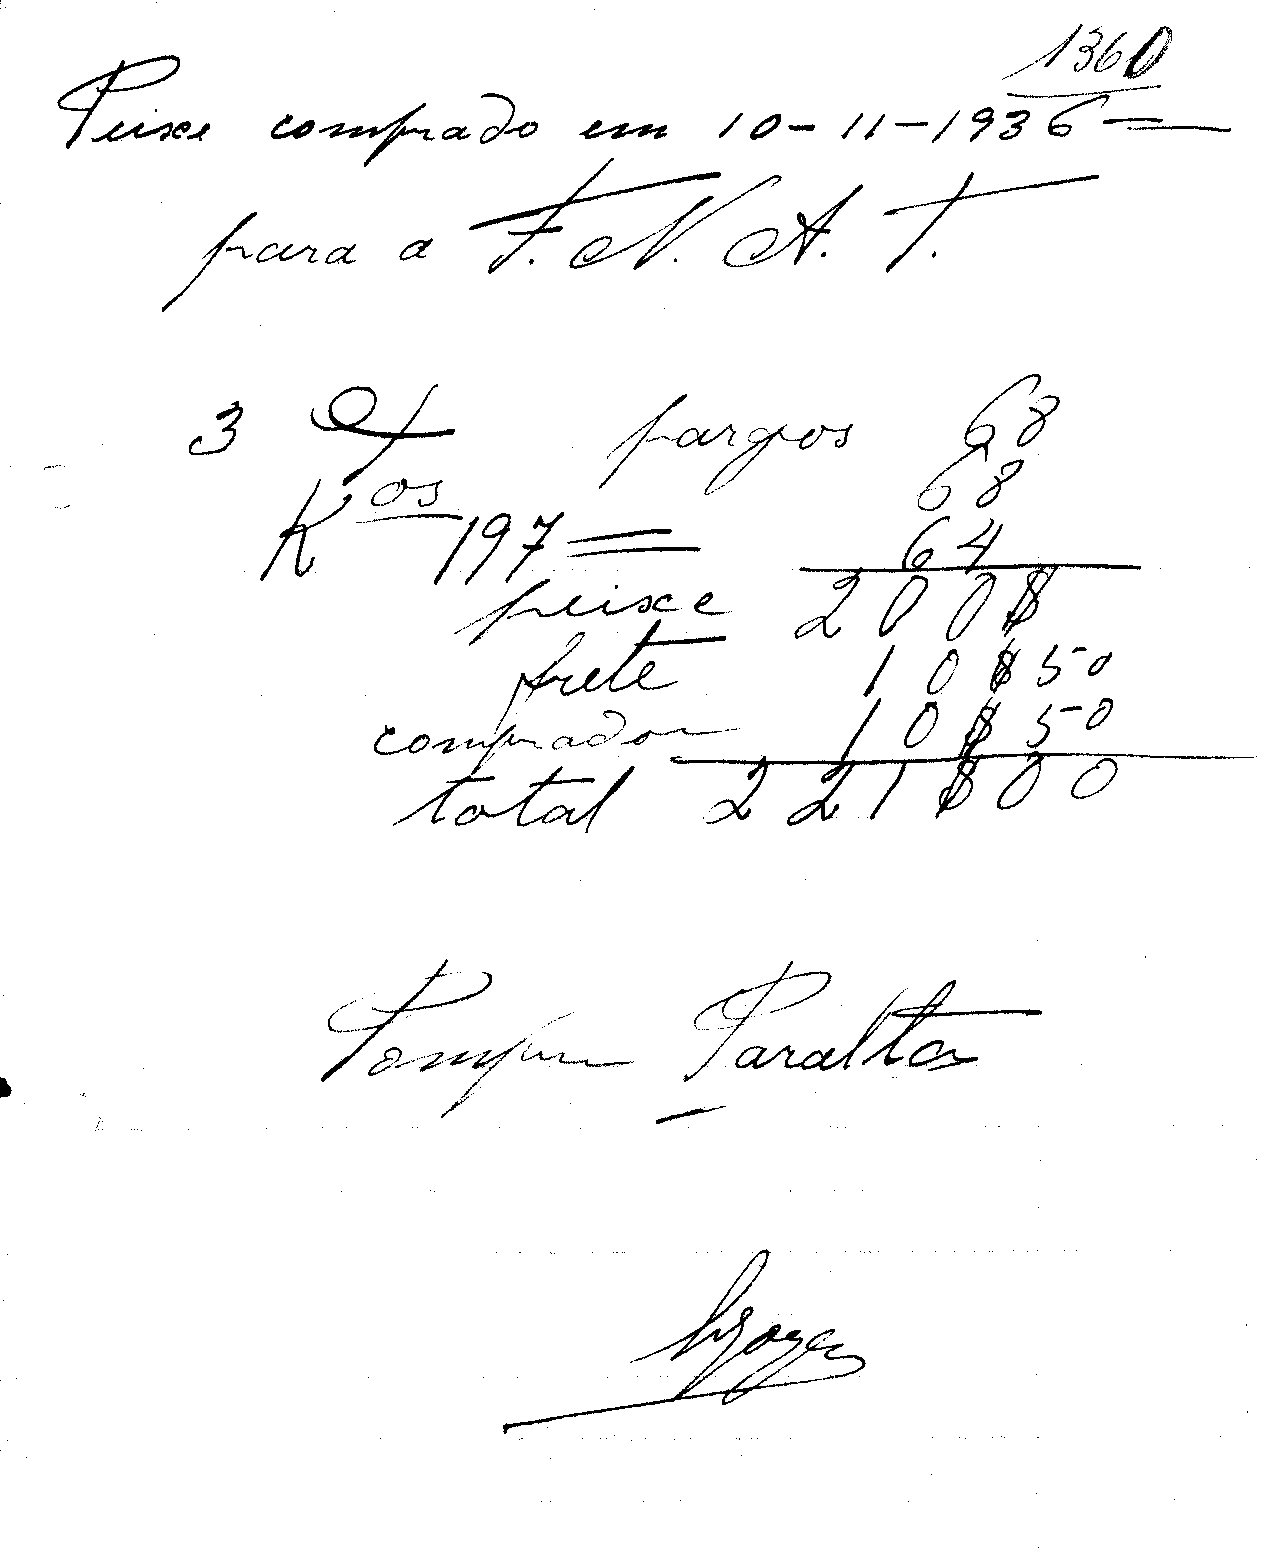 1360
Peixe comprado em 10-11-1936=
para a F. N. A. T.
3 pargos 68
68
K os 197= 64
peixe 200$
frete 10$50
comprador 10$50
total 221$00
Paralta